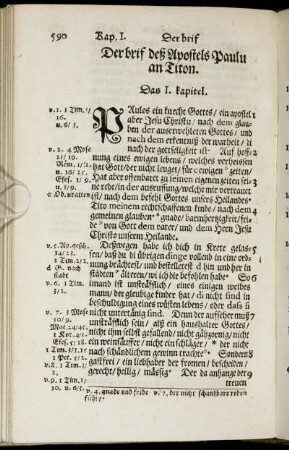 590 Kap. I. Der brif
Der brif deß Apostels Paulu
an Titon.
Das I. kapitel.
v. 1. 1 Tim. 1/
16.
u. 6/3.
v. 2. 4 Mose
23/19.
Röm. 1/2.
u. 16/25.
Efes. 1/9.
1/9.
v. 5. Ap. gesch.
14/23.
1 Tim. 2/2.
v. 6. 1 Tim.
3/2.
v. 7. 3 Mose
10/9.
Mat. 24/45.
1 Kor. 4/1.
Efes. 5/18.
1 Tim. 3/15.
1 Pet. 5/2.
v. 8. 1 Tim.
v. 9. 1 Tim. 1/
10. u. 6/3.
PAulos ein knecht Gottes/ ein apostel
aber Jesu Christu/ nach dem glau-
ben der auserwehleten Gottes/ und
nach dem erkentnüß der warheit/ di
nach der gottseligkeit ist. Auf hoff-
nung eines ewigen lebens/ welches verheissen
hat Gott/ der nicht leugt/ für ewigen zeiten/
Hat aber offenbaret zu seinen eigenen zeiten sei-
ne rede/ in der ausruffung/ welche mir vertrauet
ist/ nach dem befehl Gottes unsers Heilandes.
Tito meinem rechtschaffenen kinde/ nach dem
gemeinen glauben gnade/ barmhertzigkeit/ fri-
de/ von Gott dem vater/ und dem Herrn Jesu
Christo unserm Heilande.
Deßwegen habe ich dich in Krete gelas-
sen/ daß du di übrigen dinge vollend in eine ord-
nung brächtest/ und bestelletest hin und her in
städten ältesten/ wi ich dir befohlen habe. So
imand ist unsträflich/ eines einigen weibes
mann/ der gleubige kinder hat/ di nicht sind in
beschuldigung eines wüsten lebens/ oder daß si
nicht untertänig sind. Denn der aufseher muß
unsträflich sein/ als ein haushalter Gottes/
nicht ihm selbst gefallend/ nicht gähzornig/ nicht
ein weinsäuffer/ nicht ein schläger/ der nicht
nach schändlichem gewinn trachte. Sondern
gastfrei/ ein libhaber der fromen/ bescheiden/
gerecht/ heilig/ mässig. Der da anhange der
treuen
v. 4. gnade und fride. v. 7. der nicht schandbare reden
führe.